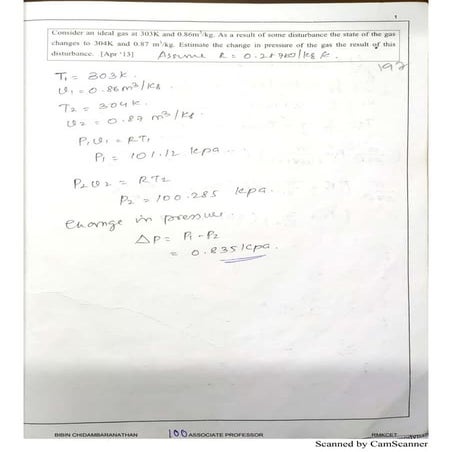 1
Consider an ideal gas at 303K and 0.86m³/kg. As a result of some disturbance the state of the gas
changes to 304K and 0.87 m³/kg. Estimate the change in pressure of the gas the result of this
disturbance. [Apr '13] Assume R = 0.287kJ/kg K.
T₁ = 303K.
υ₁ = 0.86m³/kg
T₂ = 304K.
υ₂ = 0.87 m³/kg.
P₁υ₁ = RT₁
P₁ = 101.12 kpa
P₂υ₂ = RT₂
P₂ = 100.285 kpa.
Change in pressure.
ΔP = P₁-P₂
= 0.835kpa.
BIBIN CHIDAMBARANATHAN 100 ASSOCIATE PROFESSOR RMKCET
Scanned by CamScanner